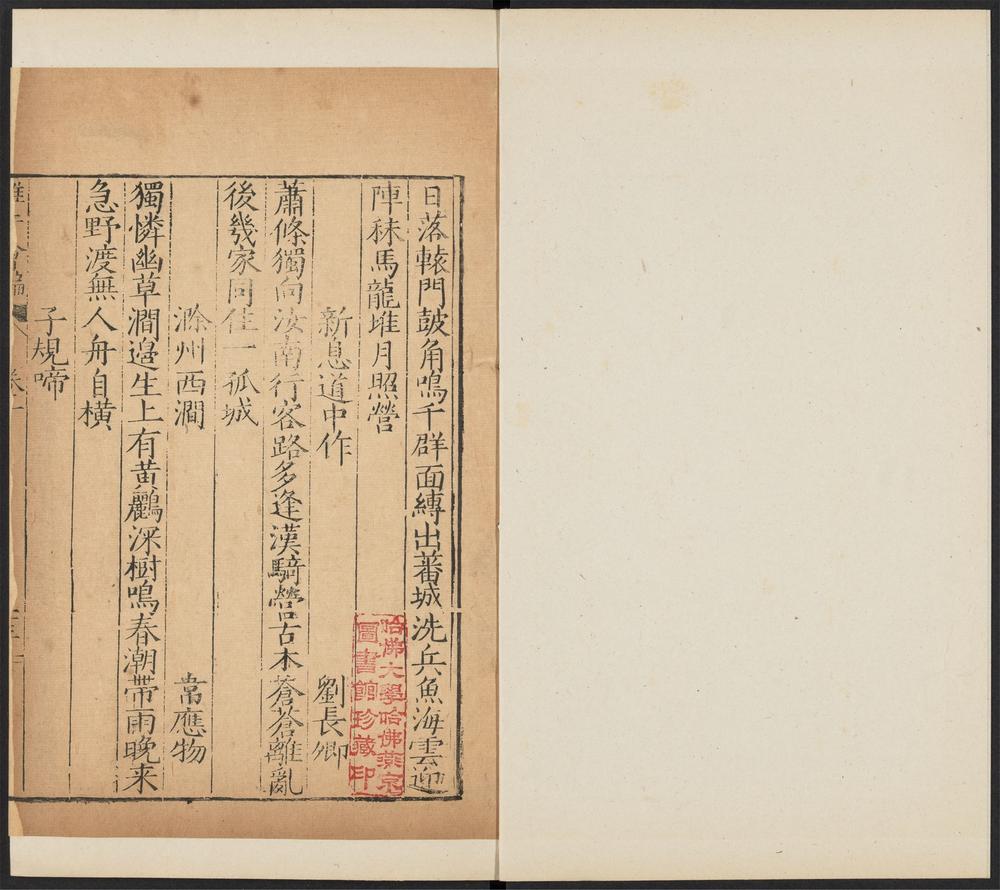 日落轅門鼓角鳴千群面縛出蕃城洗兵魚海雲迎
陣秣馬龍堆月照營
新息道中作 劉長卿
蕭條獨向汝南行客路多逢漢騎營古木蒼蒼離亂
後幾家同住一孤城
滁州西澗 韋應物
獨憐幽草澗邉生上有黄鸝深樹鳴春潮帶雨晚来
急野渡無人舟自橫
子規啼
卷一
哈佛大學哈佛燕京
圖書館珍藏印